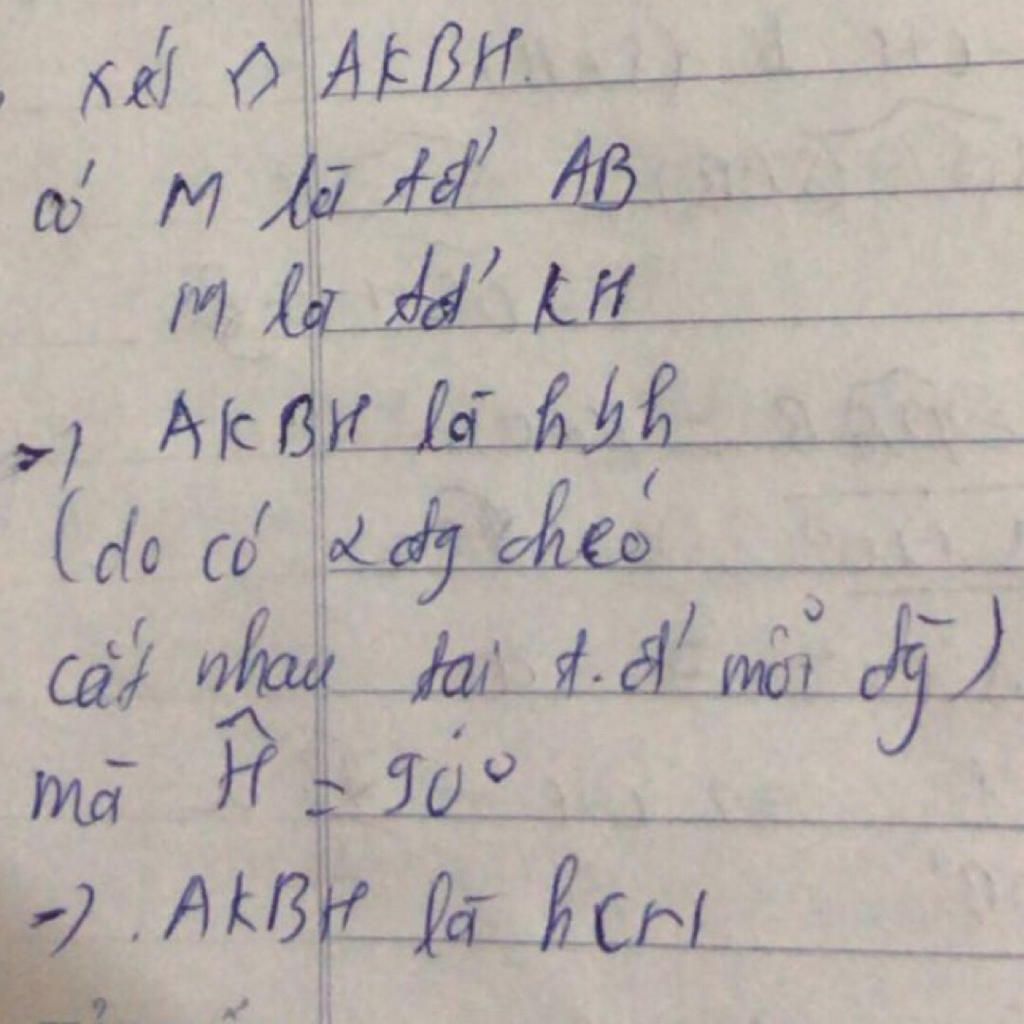 xét ◇ AKBH.
có M là tđ' AB
M là tđ' KH
=> AKBH là hbh
(do có 2 đg chéo
cắt nhau tại t.đ' mỗi đg)
mà Ĥ = 90°
=> . AKBH là hcn